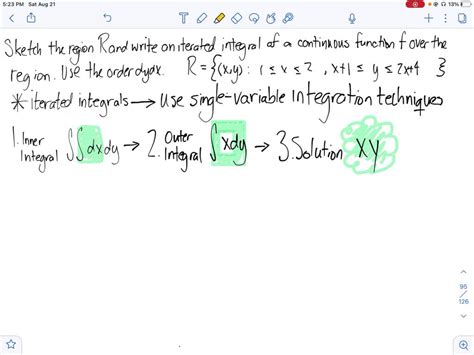 5:23 PM Sat Aug 21
13%
Sketch the region R and write an iterated integral of a continuous function f over the
region. Use the order dydx. R = {(x,y): 1 ≤ x ≤ 2 , x+1 ≤ y ≤ 2x+4 }
* iterated integrals → use single-variable integration techniques
1. Inner Integral ∫∫ dxdy → 2. Outer Integral ∫ xdy → 3. Solution xy
95
126